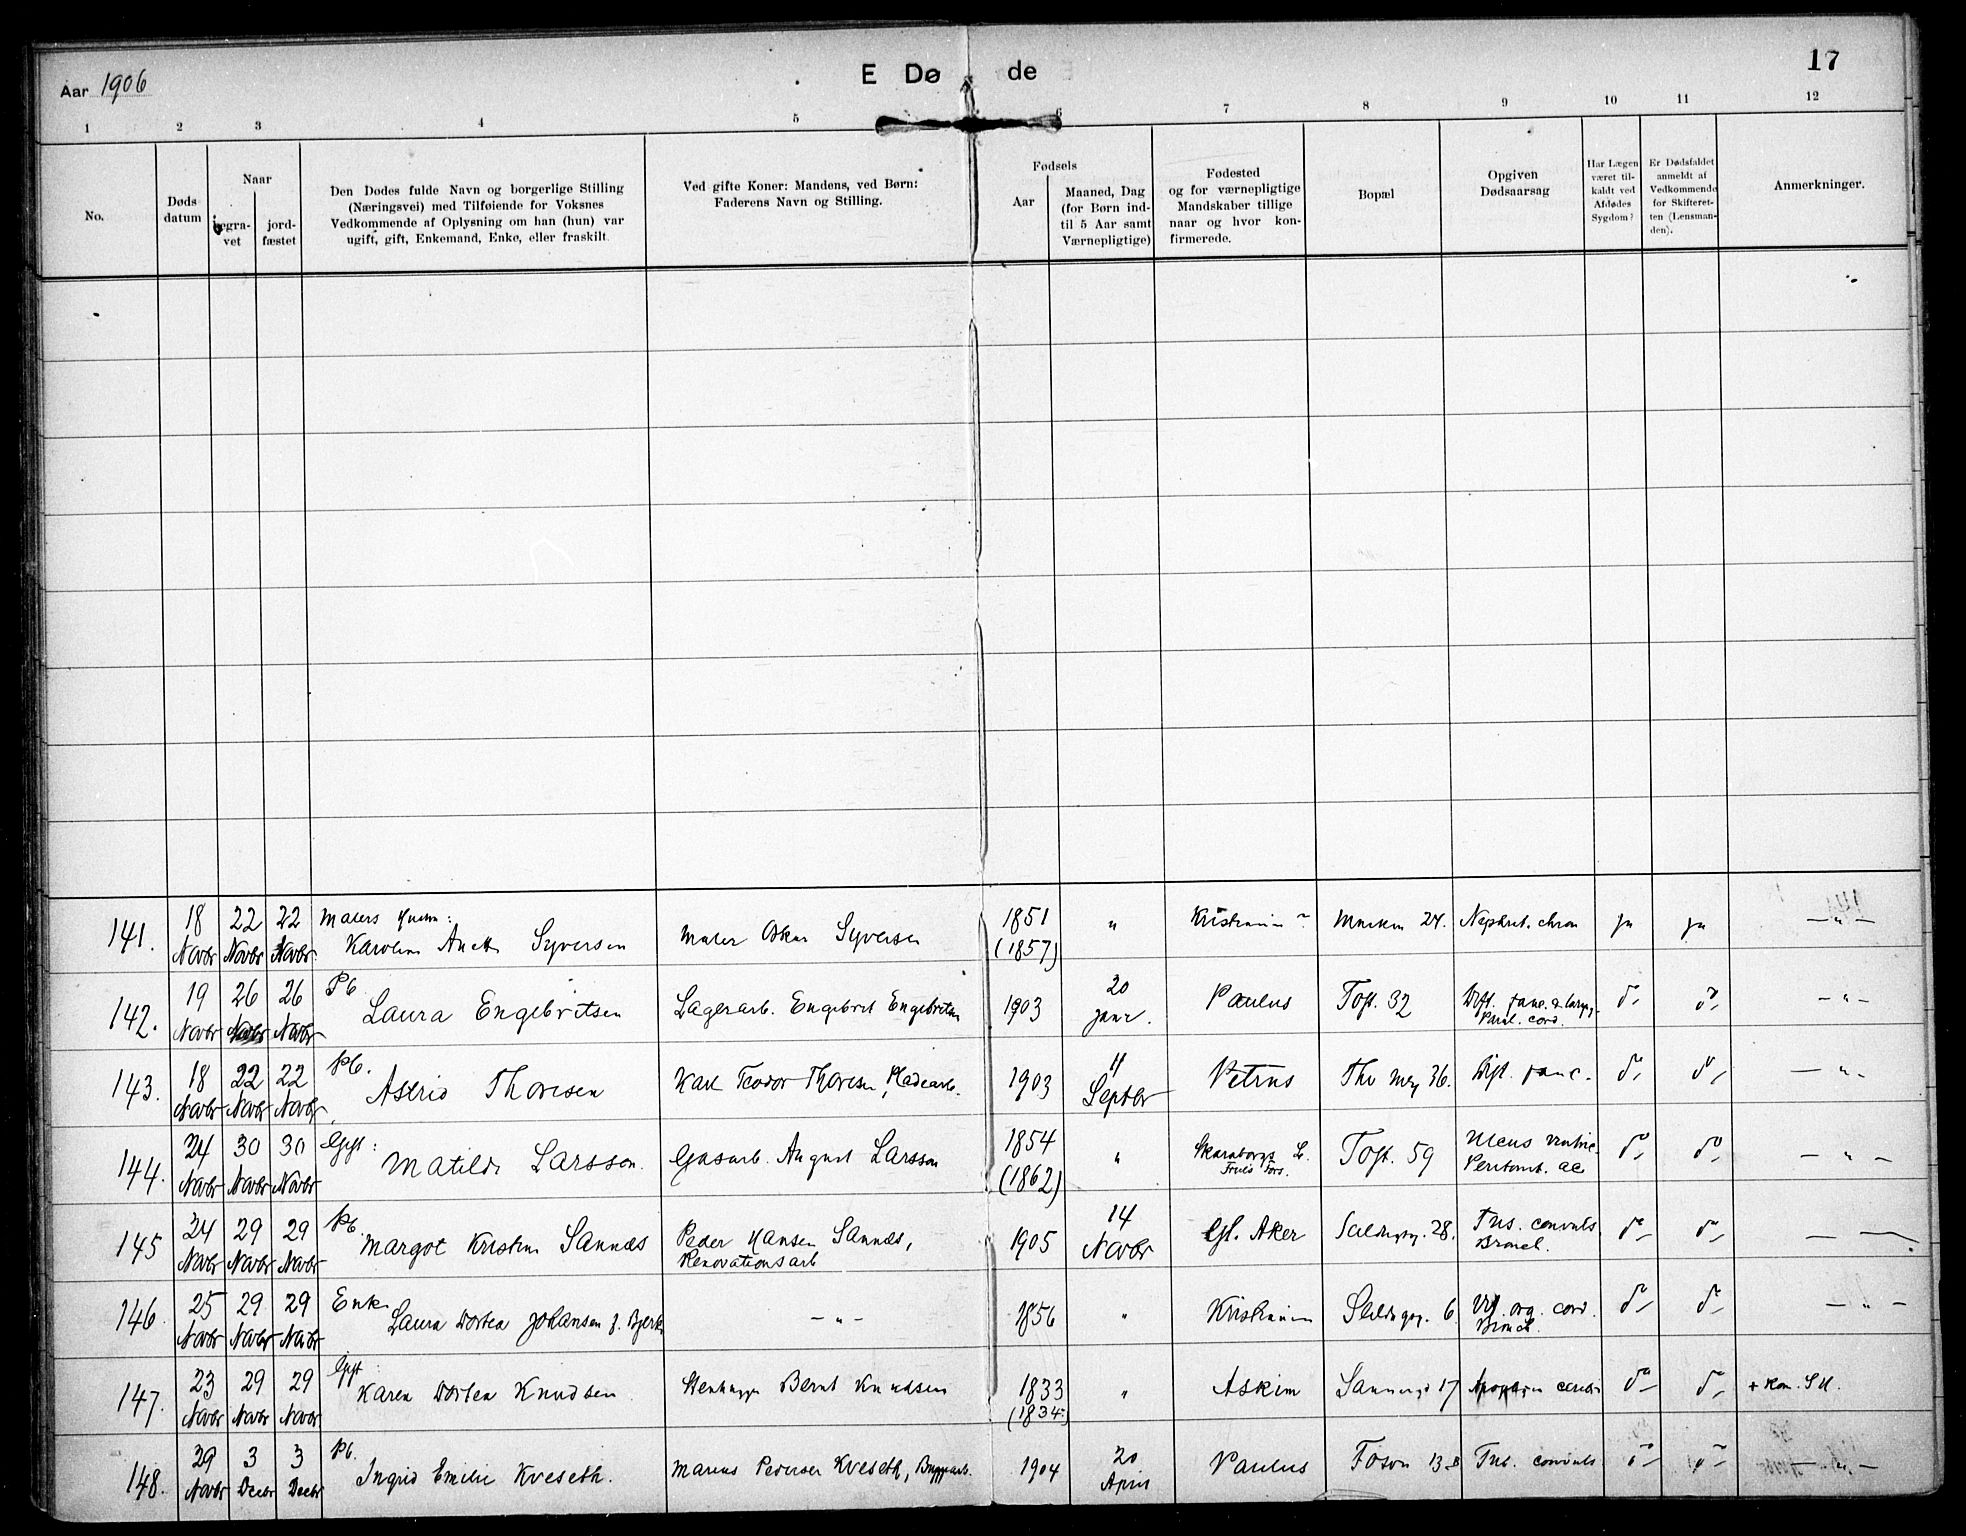 Aar 1906
E Dø de
17
1 2 3 4 5 6 7 8 9 10 11 12
No.
Døds datum
Naar
begra-vet
jord-fæstet
Den Dødes fulde Navn og borgerlige Stilling
(Næringsvei) med Tilføiende for Voksnes
Vedkommende af Oplysning om han (hun) var
ugift, gift, Enkemand, Enke, eller fraskilt.
Ved gifte Koner: Mandens, ved Børn:
Faderens Navn og Stilling.
Fødsels
Aar
Maaned, Dag
(for Børn ind-
til 5 Aar samt
Værnepligtige)
Fødested
og for værnepligtige
Mandskaber tillige
naar og hvor kon-
firmerede.
Bopæl
Opgiven
Dødsaarsag
Har Lægen
været til-
kaldt ved
Afdødes
Sygdom?
Er Dødsfaldet
anmeldt af
Vedkommende
for Skifteret-
ten (Lensman-
den).
Anmerkninger.
141. 18 Novbr 22 Novbr 22 Novbr Malers Karolin Anett Syversen Maler Oskar Syversen 1851 (1857) " 24. Nephrit. chron ja ja — " —
142. 19 Novbr 26 Novbr 26 Novbr Pb. Laura Engebritsen Lagerarb. Engebret Engebritsen 1903 20 Janr. Paulus Toft. 32 Dift. fauc. & laryng. Paral. cord. do do — " —
143. 18 Novbr 22 Novbr 22 Novbr Pb. Astrid Thoresen Karl Teodor Thoresen, Pladearb. 1903 11 Septbr Petrus Thv Mey 36. Dift. fauc. do do — " —
144. 24 Novbr 30 Novbr 30 Novbr Gift: Matilde Larsson. Gasarb. August Larsson 1854 (1862) " Skaraborgs L. Toft. 59 Ulcus ventric. Peritonit. ac do do — " —
145 24 Novbr 29 Novbr 29 Novbr Pb. Margot Kristin Sannæs Peder Hansen Sannæs, Renovationsarb 1905 14 Novbr Gl. Aker 28. Tus. convuls. Bronch. do do —
146 25 Novbr 29 Novbr 29 Novbr Enke Laura Dortea Johansen f. Bjerke — " — 1856 " Kristiania 6 org. cord. Bronch. do do — " —
147. 23 Novbr 29 Novbr 29 Novbr Gift Karen Dortea Knudsen Stenhugger Bernt Knudsen 1833 (1834) " Askim Sannergd 17 Apoplexia cerebri do do
148. 29 Novbr 3 Decbr 3 Decbr Pb. Ingrid Emilie Kveseth. Marius Pedersen Kveseth, Byggearb. 1904 20 April Paulus Fossv 13 B Tus. convuls do do — " —